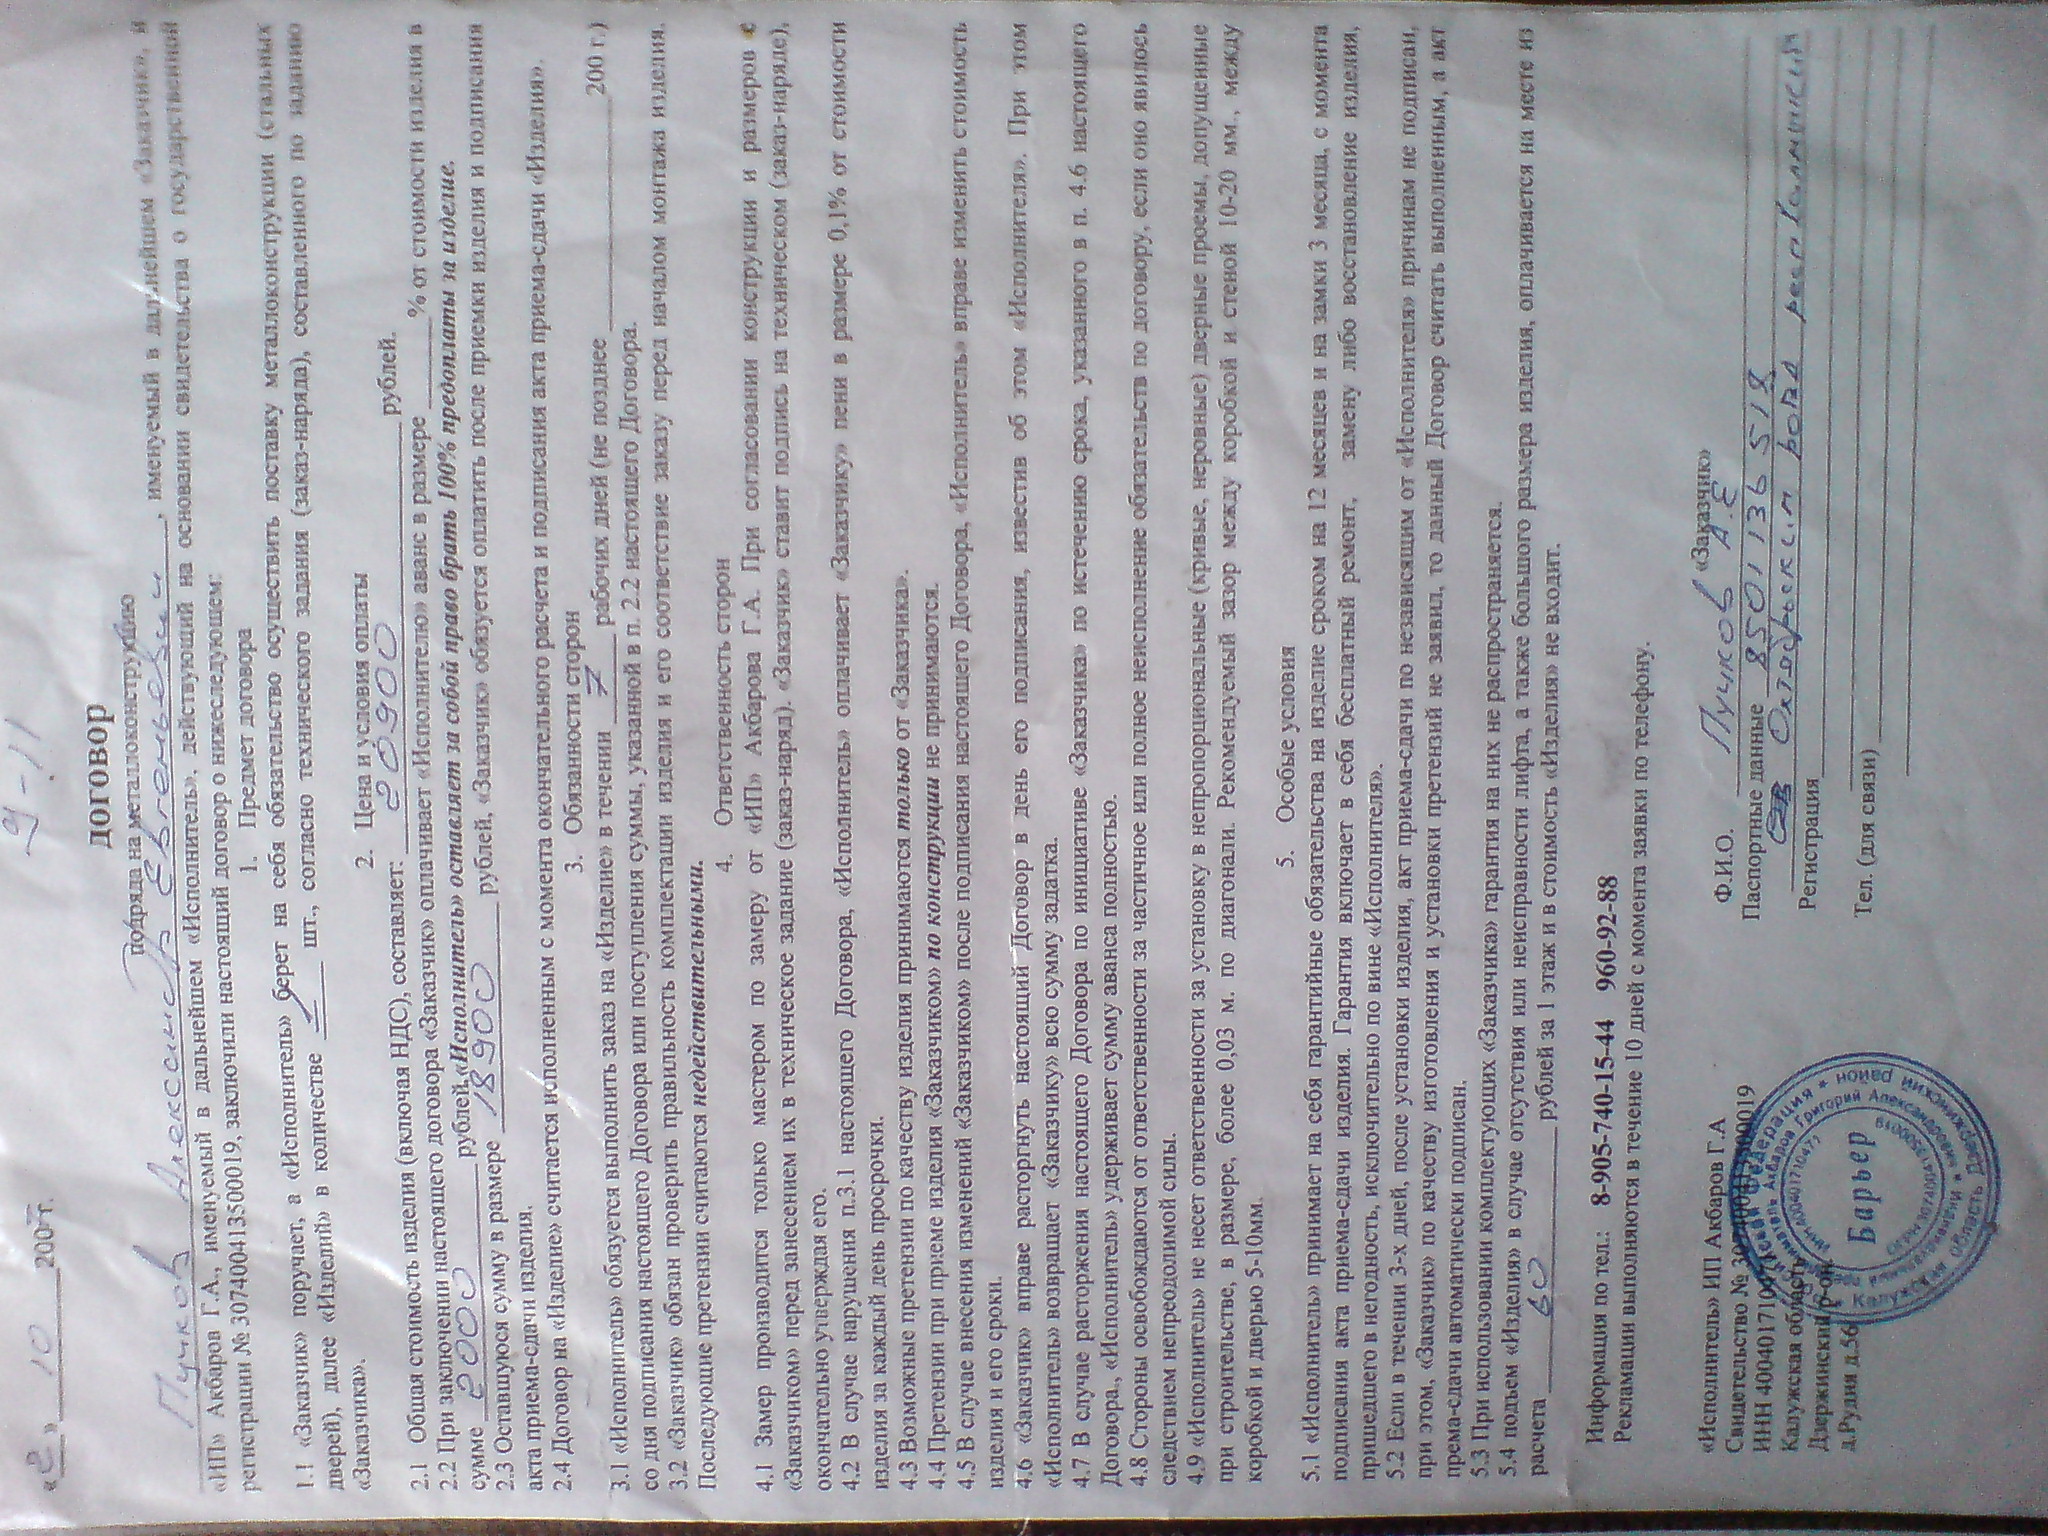 9-11
« » 10 200 г.
ДОГОВОР
подряда на металлоконструкцию
Пучков Александр Евгеньевич, именуемый в дальнейшем «Заказчик», и
«ИП» Акбаров Г.А., именуемый в дальнейшем «Исполнитель», действующий на основании свидетельства о государственной
регистрации № 307400413500019, заключили настоящий договор о нижеследующем:
1. Предмет договора
1.1 «Заказчик» поручает, а «Исполнитель» берет на себя обязательство осуществить поставку металлоконструкции (стальных
дверей), далее «Изделий» в количестве 1 шт., согласно технического задания (заказ-наряда), составленного по заданию
«Заказчика».
2. Цена и условия оплаты
2.1 Общая стоимость изделия (включая НДС), составляет: 20900 рублей.
2.2 При заключении настоящего договора «Заказчик» оплачивает «Исполнителю» аванс в размере ______% от стоимости изделия в
сумме 2000 рублей.«Исполнитель» оставляет за собой право брать 100% предоплаты за изделие.
2.3 Оставшуюся сумму в размере 18900 рублей, «Заказчик» обязуется оплатить после приемки изделия и подписания
акта приема-сдачи изделия.
2.4 Договор на «Изделие» считается исполненным с момента окончательного расчета и подписания акта приема-сдачи «Изделия».
3. Обязанности сторон
3.1 «Исполнитель» обязуется выполнить заказ на «Изделие» в течении 7 рабочих дней (не позднее ____________200 г.)
со дня подписания настоящего Договора или поступления суммы, указанной в п. 2.2 настоящего Договора.
3.2 «Заказчик» обязан проверить правильность комплектации изделия и его соответствие заказу перед началом монтажа изделия.
Последующие претензии считаются недействительными.
4. Ответственность сторон
4.1 Замер производится только мастером по замеру от «ИП» Акбарова Г.А. При согласовании конструкции и размеров с
«Заказчиком» перед занесением их в техническое задание (заказ-наряд). «Заказчик» ставит подпись на техническом (заказ-наряде),
окончательно утверждая его.
4.2 В случае нарушения п.3.1 настоящего Договора, «Исполнитель» оплачивает «Заказчику» пени в размере 0,1% от стоимости
изделия за каждый день просрочки.
4.3 Возможные претензии по качеству изделия принимаются только от «Заказчика».
4.4 Претензии при приеме изделия «Заказчиком» по конструкции не принимаются.
4.5 В случае внесения изменений «Заказчиком» после подписания настоящего Договора, «Исполнитель» вправе изменить стоимость
изделия и его сроки.
4.6 «Заказчик» вправе расторгнуть настоящий Договор в день его подписания, известив об этом «Исполнителя». При этом
«Исполнитель» возвращает «Заказчику» всю сумму задатка.
4.7 В случае расторжения настоящего Договора по инициативе «Заказчика» по истечению срока, указанного в п. 4.6 настоящего
Договора., «Исполнитель» удерживает сумму аванса полностью.
4.8 Стороны освобождаются от ответственности за частичное или полное неисполнение обязательств по договору, если оно явилось
следствием непреодолимой силы.
4.9 «Исполнитель» не несет ответственности за установку в непропорциональные (кривые, неровные) дверные проемы, допущенные
при строительстве, в размере, более 0,03 м. по диагонали. Рекомендуемый зазор между коробкой и стеной 10-20 мм., между
коробкой и дверью 5-10мм.
5. Особые условия
5.1 «Исполнитель» принимает на себя гарантийные обязательства на изделие сроком на 12 месяцев и на замки 3 месяца, с момента
подписания акта приема-сдачи изделия. Гарантия включает в себя бесплатный ремонт, замену либо восстановление изделия,
пришедшего в негодность, исключительно по вине «Исполнителя».
5.2 Если в течении 3-х дней, после установки изделия, акт приема-сдачи по независящим от «Исполнителя» причинам не подписан,
при этом, «Заказчик» по качеству изготовления и установки претензий не заявил, то данный Договор считать выполненным, а акт
према-сдачи автоматически подписан.
5.3 При использовании комплектующих «Заказчика» гарантия на них не распространяется.
5.4 подъем «Изделия» в случае отсутствия или неисправности лифта, а также большого размера изделия, оплачивается на месте из
расчета 60 рублей за 1 этаж и в стоимость «Изделия» не входит.
Информация по тел.: 8-905-740-15-44 960-92-88
Рекламации выполняются в течение 10 дней с момента заявки по телефону.
«Исполнитель» ИП Акбаров Г.А
Свидетельство № 307400413500019
ИНН 400401710471
Калужская область
Дзержинский р-он
д.Рудня д.56
Барьер
«Заказчик»
Ф.И.О. Пучков А.Е
Паспортные данные 8501136518
Октябрьским РОВД респ Калмыкия
Регистрация
Тел. (для связи)